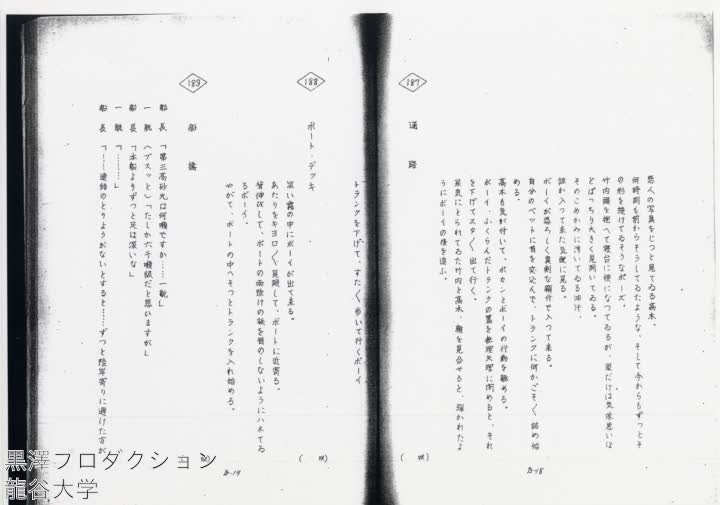 恋人の写真をじつと見てゐる高木。
何時間も前からそうしてゐたような、そして今からもずつとそ
の形を続けてゐそうなポーズ。
竹内頭を抱へて寝台に横になつてゐるが、眼だけは気味悪いほ
どぱつちり大きく見開いてゐる。
そのこめかみに浮いてゐる油汗。
誰か入つて来た気配に見る。
ボーイが恐ろしく真剣な顔付で入つて来る。
自分のベツトに首を突込んで、トランクに何かごそ〱詰め始
める。
高木も気が付いて、ポカンとボーイの行動を眺める。
ボーイ、ふくらんだトランクの蓋を無理矢理に閉めると、それ
を下げてスタ〱出て行く。
呆気にとられてゐた竹内と高木、顔を見合せると、弾かれたよ
うにボーイの後を追ふ。
187
通路
トランクを下げて、すた〱歩いて行くボーイ
188
ボート・デツキ
深い霧の中にボーイが出て来る。
あたりをキヨロ〱見廻して、ボートに近寄る。
背伸びして、ボートの雨除けの被を音のしないようにハネてゐ
るボーイ。
やがて、ボートの中へそつとトランクを入れ始める。
189
船橋
船長「第三高砂丸は何噸ですか……一航」
一航（ブスッと）「たしか六千噸級だと思いますが」
船長「本船よりずつと足は深いな」
一航「…………」
船長「……連絡のとりようがないとすると……ずつと陸岸寄りに避けた方が
B-18
B-19
黒澤プロダクション
龍谷大学